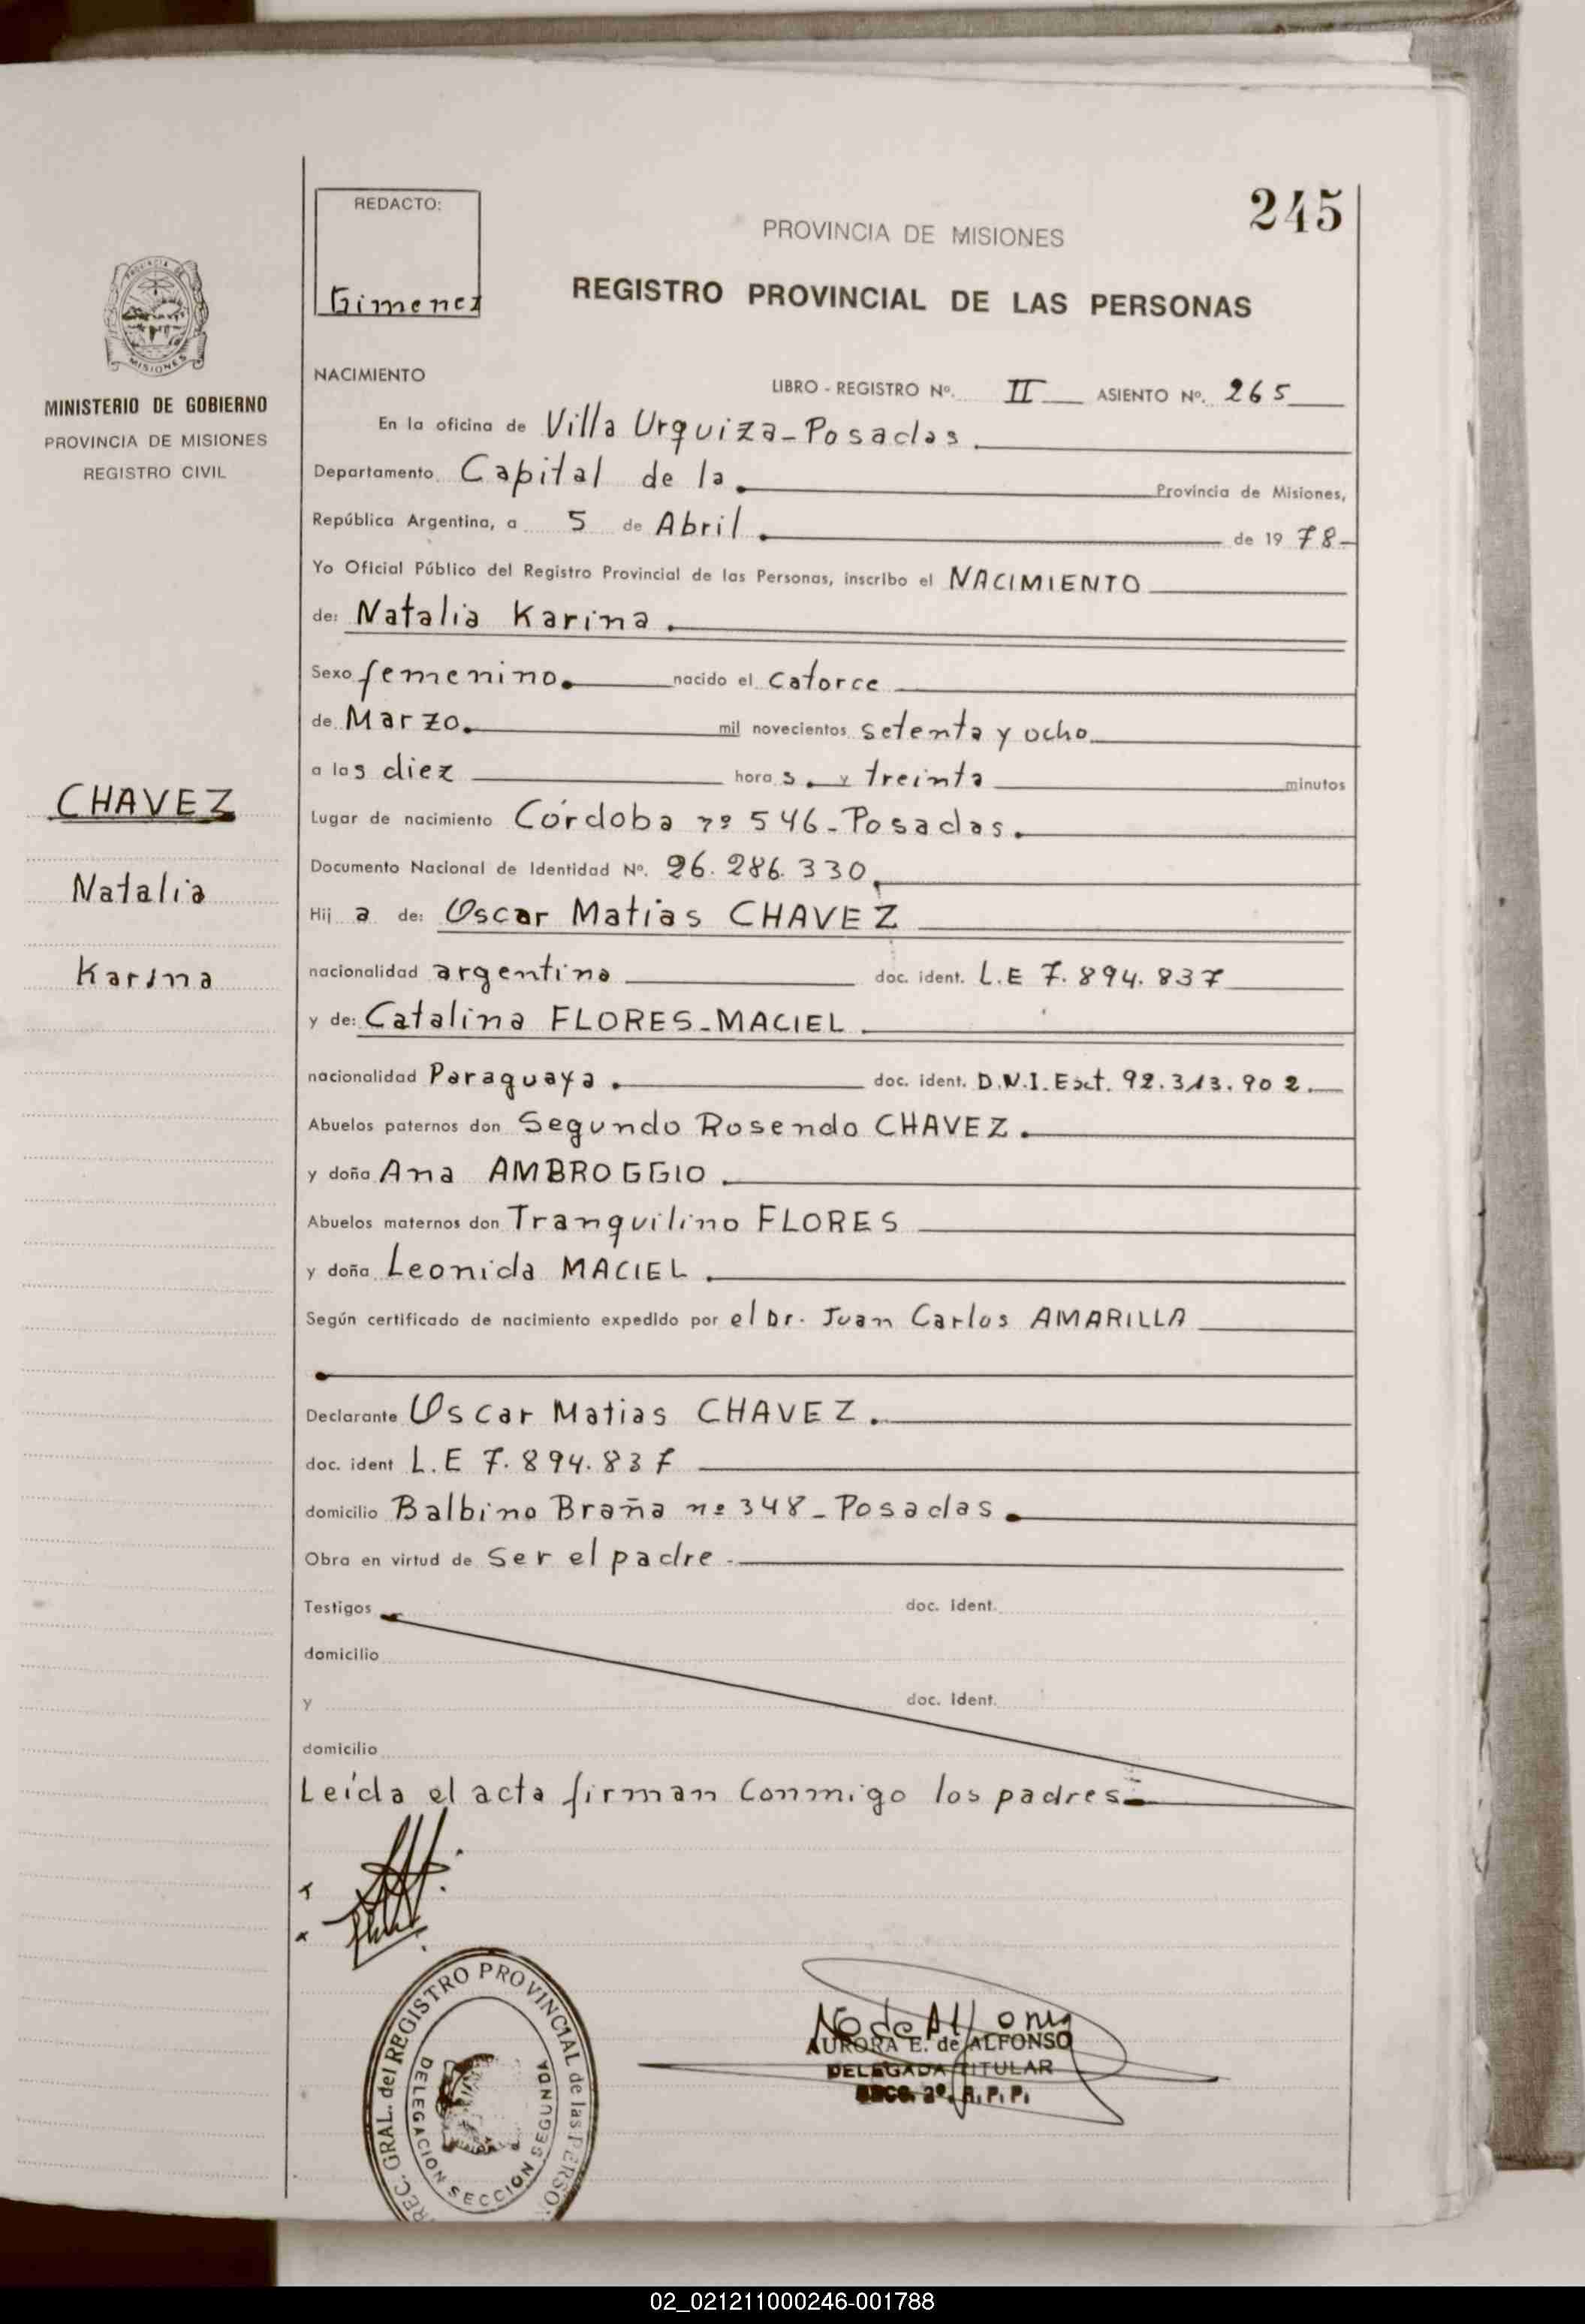 245
REDACTO:
Gimenez
PROVINCIA DE MISIONES
REGISTRO PROVINCIAL DE LAS PERSONAS
MISIONES
MINISTERIO DE GOBIERNO
PROVINCIA DE MISIONES
REGISTRO CIVIL
CHAVEZ
Natalia
Karina
NACIMIENTO
LIBRO - REGISTRO Nº. II ASIENTO Nº. 265
En la oficina de Villa Urquiza-Posadas
Departamento Capital de la Provincia de Misiones,
República Argentina, a 5 de Abril de 1978
Yo Oficial Público del Registro Provincial de las Personas, inscribo el NACIMIENTO
de: Natalia Karina
Sexo femenino. nacido el catorce
de Marzo. mil novecientos setenta y ocho
a las diez horas. y treinta minutos
Lugar de nacimiento Córdoba nº 546-Posadas.
Documento Nacional de Identidad Nº. 26.286.330
Hija de: Oscar Matias CHAVEZ
nacionalidad argentina doc. ident. L.E 7.894.837
y de: Catalina FLORES-MACIEL
nacionalidad Paraguaya. doc. ident. D.N.I. Ext. 92.313.902.
Abuelos paternos don Segundo Rosendo CHAVEZ.
y doña Ana AMBROGGIO.
Abuelos maternos don Tranquilino FLORES
y doña Leonida MACIEL.
Según certificado de nacimiento expedido por el Dr. Juan Carlos AMARILLA
Declarante Oscar Matias CHAVEZ.
doc. ident L.E 7.894.837
domicilio Balbino Braña nº 348-Posadas.
Obra en virtud de ser el padre.
Testigos doc. ident.
domicilio
y doc. ident.
domicilio
Leída el acta firman conmigo los padres.
REC. GRAL. del REGISTRO PROVINCIAL de las PERSO
DELEGACION SECCION SEGUNDA
AURORA E. de ALFONSO
DELEGADA TITULAR
SECC. 2º. R. P. P.
02_021211000246-001788